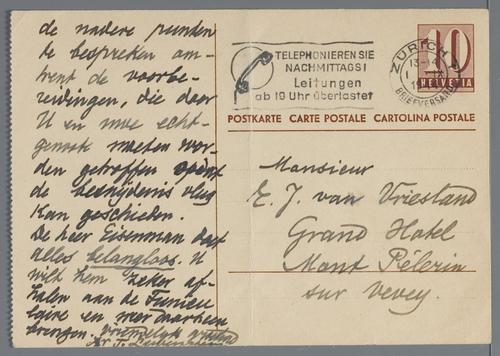 de nadere punten
te bespreken om-
trent de voorbe-
reidingen, die door
U en mw echt-
genoote moeten wor-
den getroffen
de vlieg
kan geschieden.
De heer Eisenman
alles belangloos. U
wilt hem zeker af-
halen aan de Funicu
laire en meer daarheen
brengen.
TELEPHONIEREN SIE
NACHMITTAGS!
Leitungen
ab 19 Uhr überlastet
ZÜRICH
13-14
BRIEFVERSAND
10
HELVETIA
POSTKARTE CARTE POSTALE CARTOLINA POSTALE
Monsieur
E. J. van Vriesland
Grand Hotel
Mont Pélerin
sur Vevey.